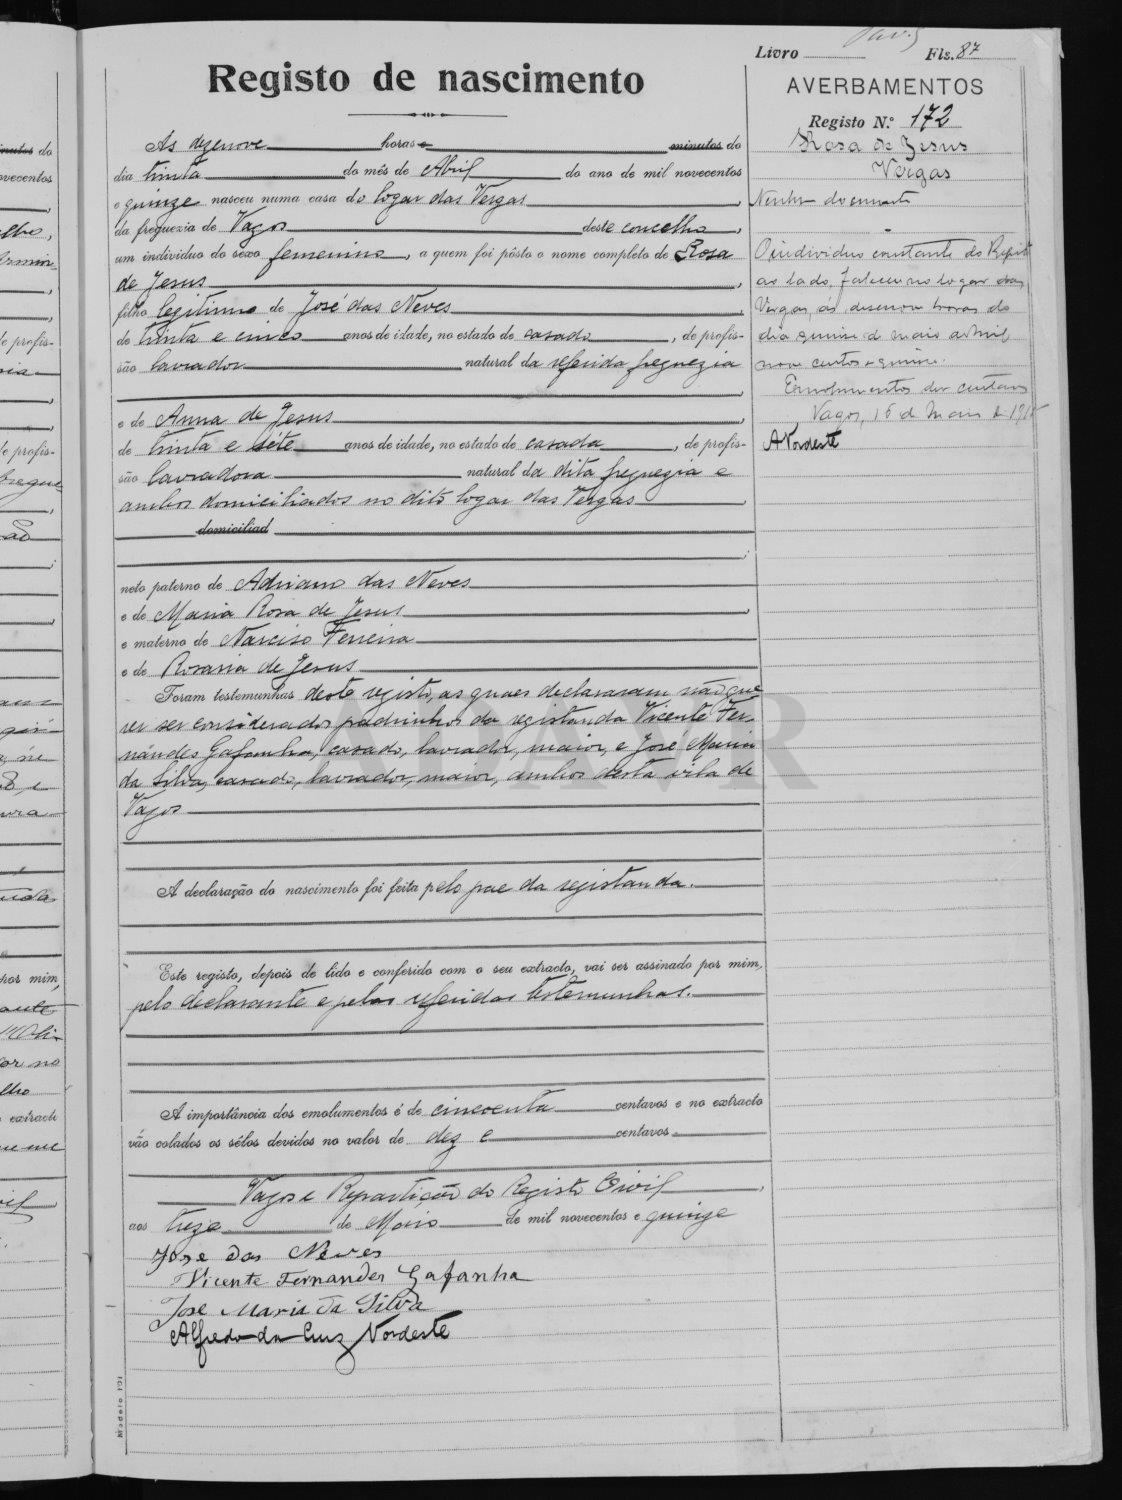 Livro Fls. 87
Registo de nascimento
AVERBAMENTOS
Registo N.º 172
Rosa de Jesus
Vergas
Nenhum documento
O individuo constante do Registo
ao lado, faleceu no logar das
Vergas, ás desenove horas do
dia quinze de maio de mil
nove centos e quinze.
Emolumentos dez centavos
Vagos, 16 de Maio de 1915
A Nordeste
Às dezenove horas e minutos do
dia trinta do mês de Abril do ano de mil novecentos
e quinze nasceu numa casa do logar das Vergas,
da freguezia de Vagos deste concelho,
um individuo do sexo femenino, a quem foi pôsto o nome completo de Rosa
de Jesus,
filho legitimo de José das Neves,
de trinta e cinco anos de idade, no estado de casado, de profis-
são lavrador natural da referida freguezia
e de Anna de Jesus,
de trinta e séte anos de idade, no estado de casada, de profis-
são lavradora natural da dita freguezia e
ambos domiciliados no dito logar das Vergas,
domiciliad
neto paterno de Adriano das Neves
e de Maria Rosa de Jesus,
e materno de Narciso Ferreira
e de Rosaria de Jesus
Foram testemunhas deste registo, as quaes declararam não que-
rer ser considerados padrinhos da registanda Vicente Fer-
nándes Gafanha, casado, lavrador, maior, e José Maria
da Silva, casado, lavrador, maior, ambos desta vila de
Vagos
A declaração do nascimento foi feita pelo pae da registanda.
Este registo, depois de lido e conferido com o seu extracto, vai ser assinado por mim,
pelo declarante e pelas referidas testemunhas.
A importância dos emolumentos é de cincoenta centavos e no extracto
vão colados os sêlos devidos no valor de dez e centavos.
Vagos e Repartição do Registo Civil,
aos treze de Maio de mil novecentos e quinze
Jose das Neves
Vicente Fernandes Gafanha
Jose Maria da Silva
Alfredo da Cruz Nordeste
Modelo 101
ADAVR